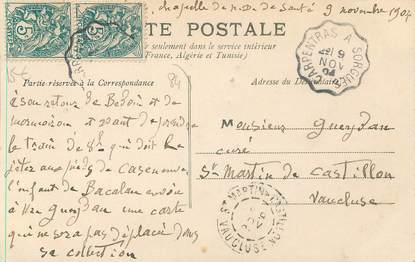 chapelle de N.D. de Santé 9 novembre 1904
CARTE POSTALE
seulement dans le service intérieur
(France, Algérie et Tunisie)
Partie réservée à la Correspondance
Adresse du Destinataire
5
5
CARPENTRAS A SORGUES
9 NOV 04
84
à son retour de Bedoin et de
mormoiron et avant de prendre
le train de 8h qui doit le
jeter aux pieds de Caseneuve
l'enfant de Bacalan envoie
à Mr Gueydan une carte
qui ne sera pas déplacée dans
sa collection
Monsieur Gueydan
curé
St Martin de Castillon
Vaucluse
ST MARTIN DE CASTILLON
VAUCLUSE